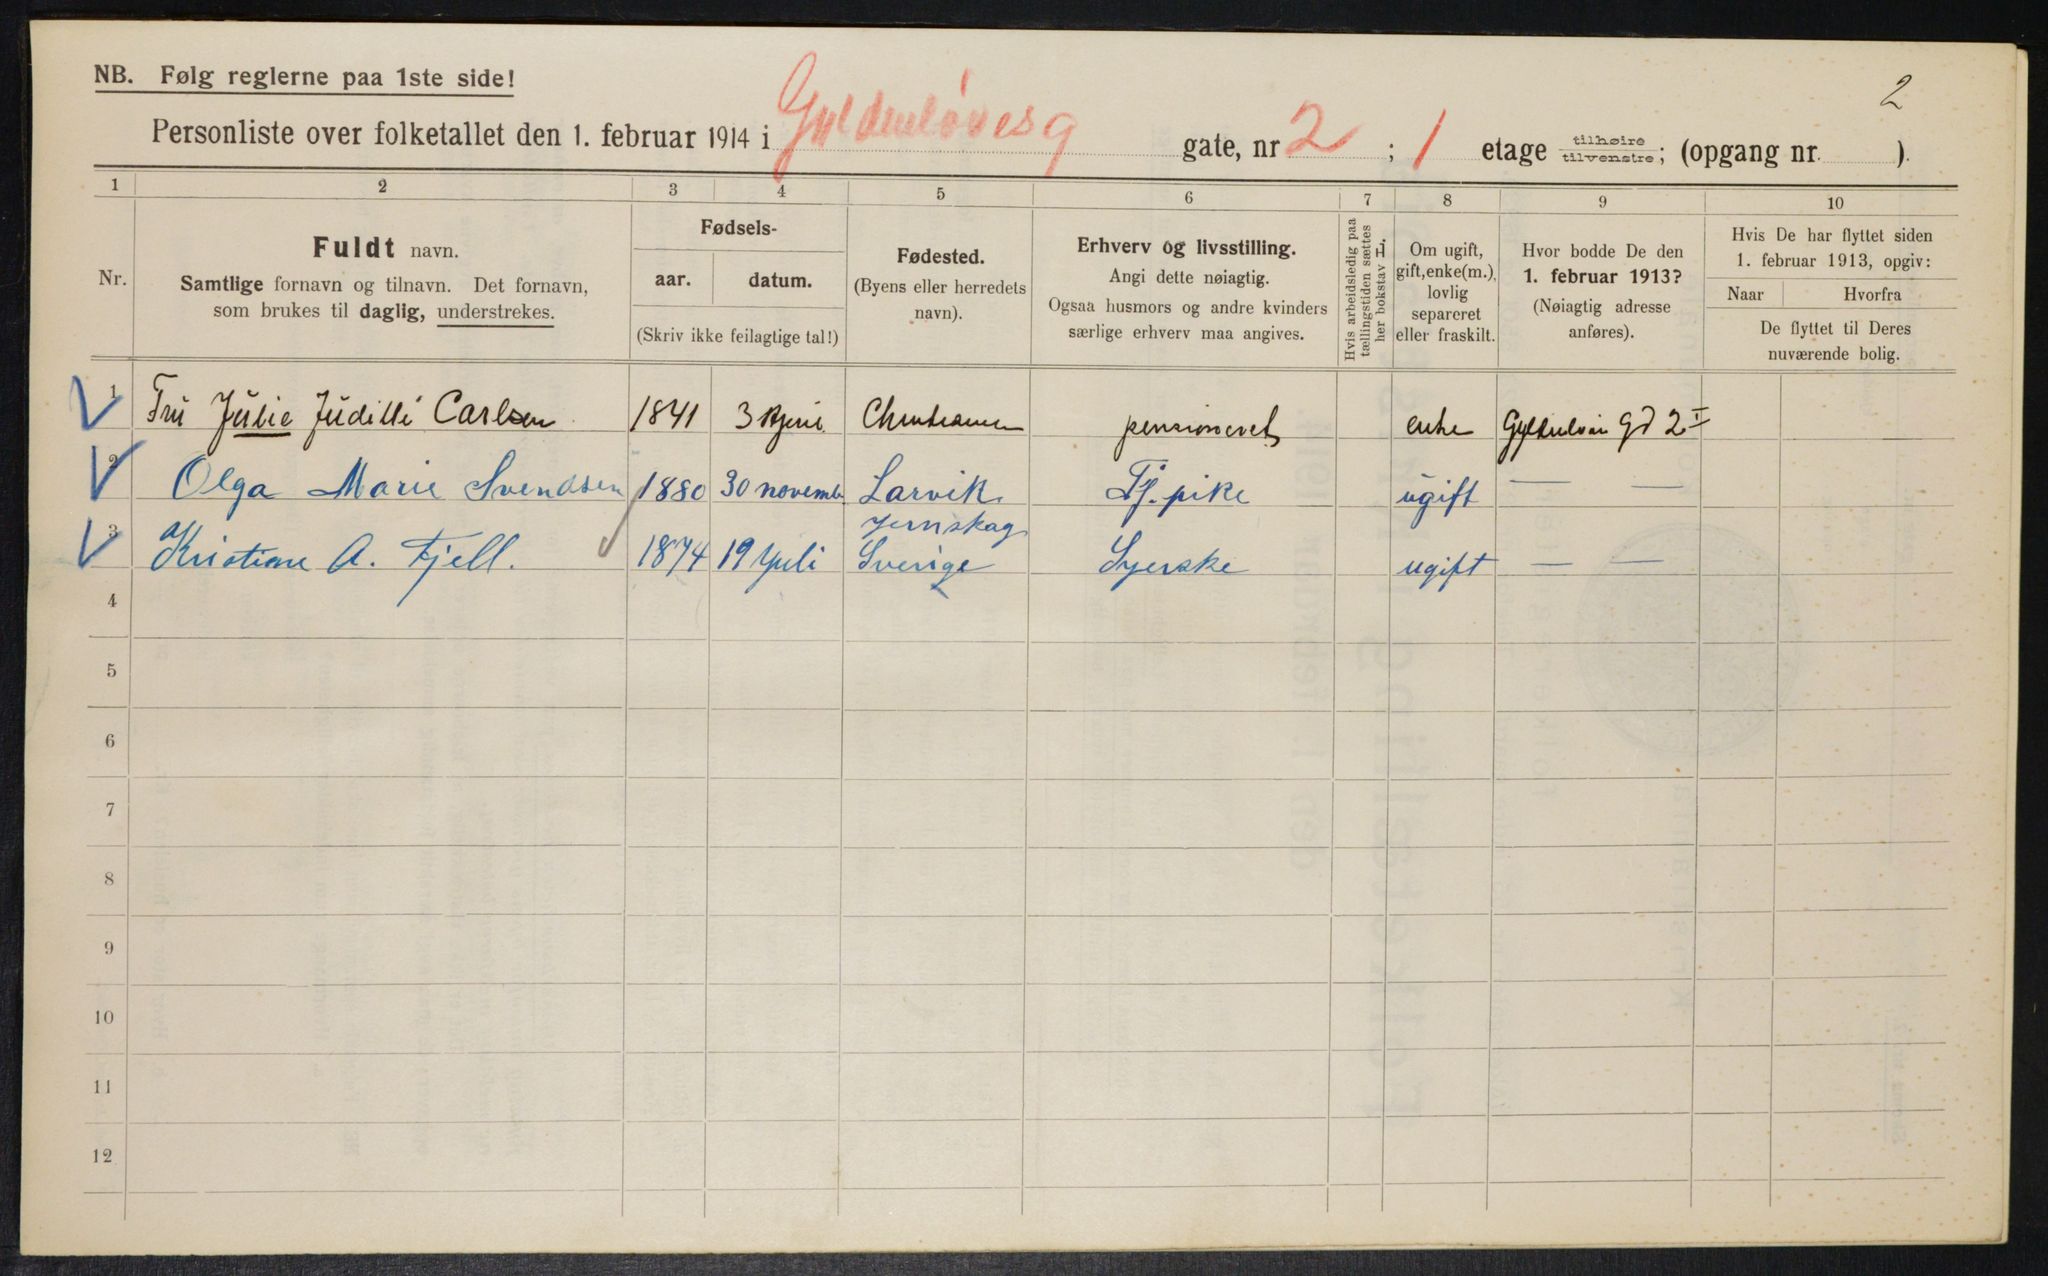 2
NB. Følg reglerne paa 1ste side!
Personliste over folketallet den 1. februar 1914 i Gyldenløvesg gate, nr 2 ; 1 etage tilhøire tilvenstre; (opgang nr. ).
1 2 3 4 5 6 7 8 9 10
Nr.
Fuldt navn.
Samtlige fornavn og tilnavn. Det fornavn,
som brukes til daglig, understrekes.
Fødsels-
aar. datum.
(Skriv ikke feilagtige tal!)
Fødested.
(Byens eller herredets
navn).
Erhverv og livsstilling.
Angi dette nøiagtig.
Ogsaa husmors og andre kvinders
særlige erhverv maa angives.
Hvis arbeidsledig paa
tællingstiden sættes
her bokstav L.
Om ugift,
gift, enke(m.),
lovlig
separeret
eller fraskilt.
Hvor bodde De den
1. februar 1913?
(Nøiagtig adresse
anføres).
Hvis De har flyttet siden
1. februar 1913, opgiv:
Naar Hvorfra
De flyttet til Deres
nuværende bolig.
1 Fru Julie Juditte Carlsen 1841 3 pensioneret enke 2 I
2 Olga Marie Svendsen 1880 30 novemb. Larvik Tj. pike ugift — —
Jernskag
3 Kristine A. Fjell. 1874 19 Juli Sverige Syerske ugift — —
4
5
6
7
8
9
10
11
12